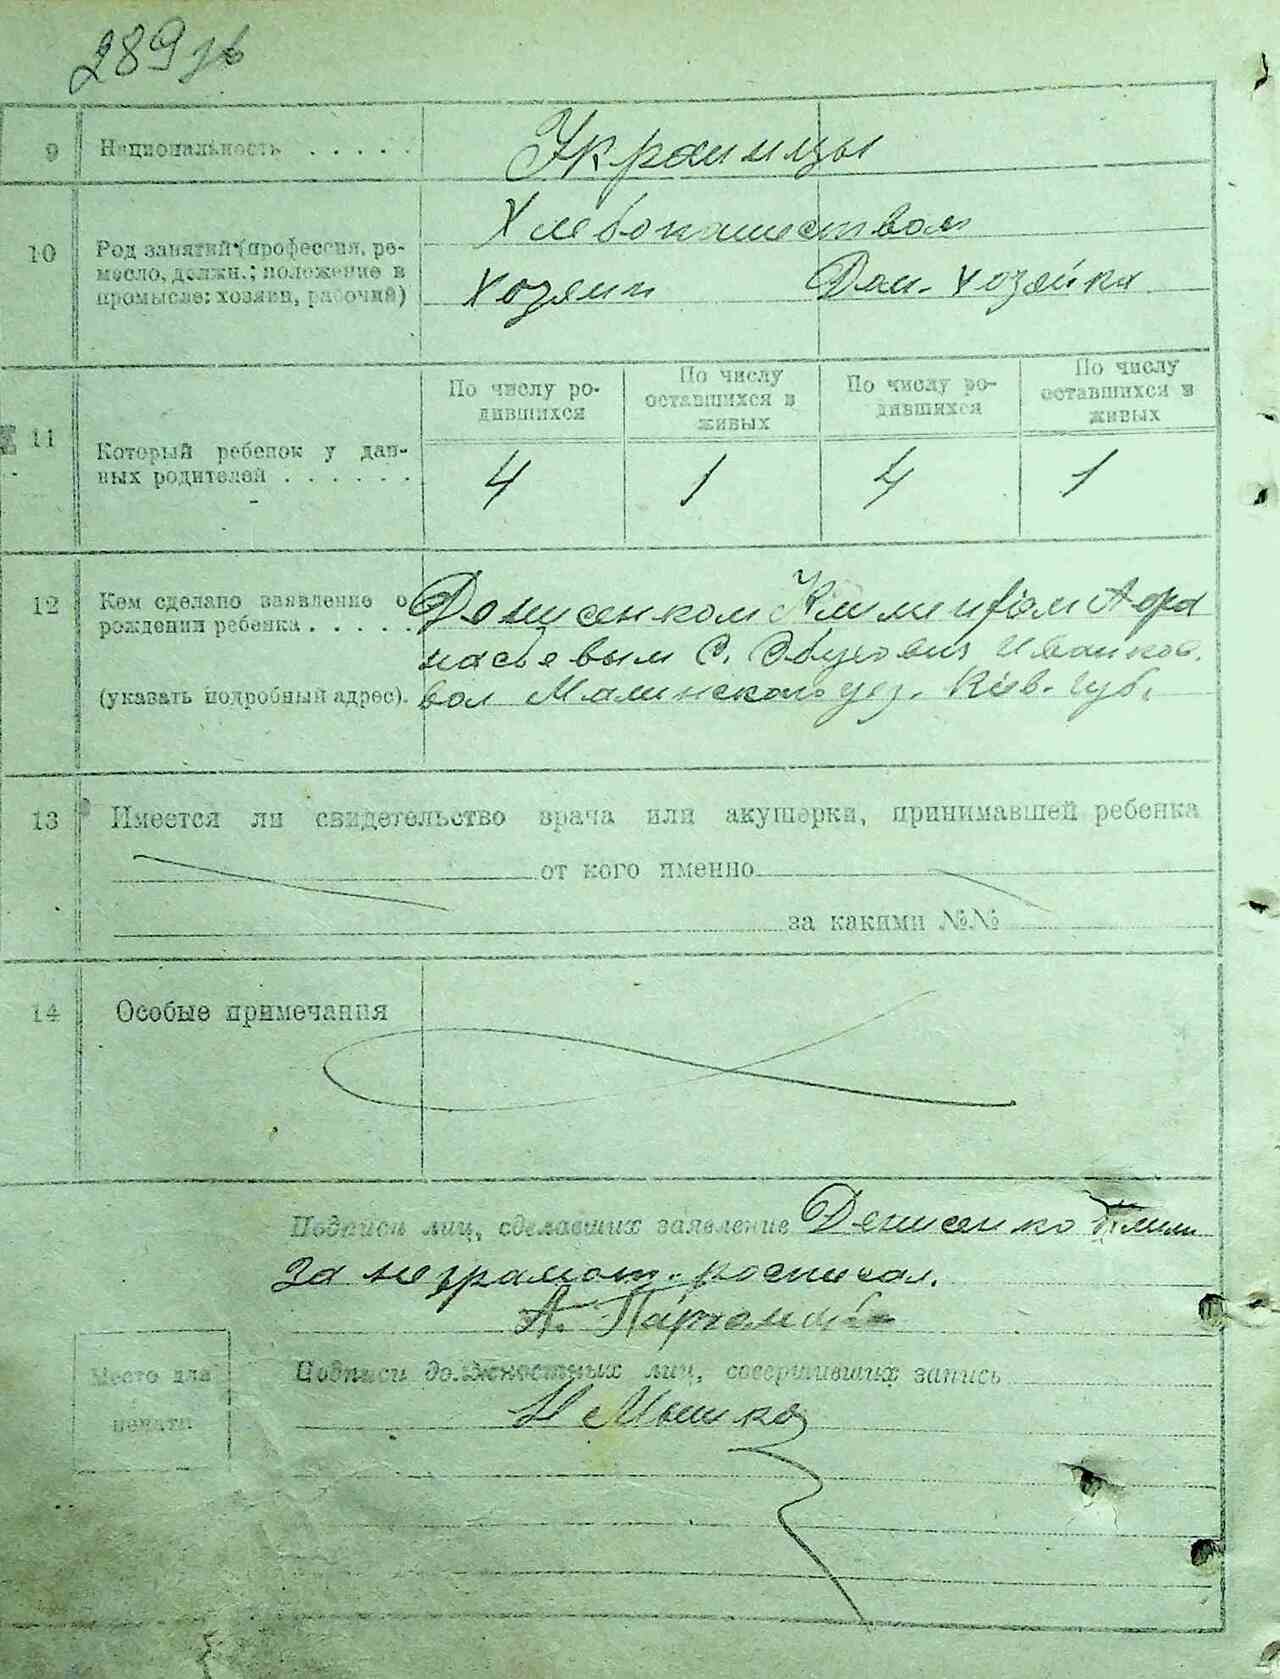 289 зв
9 Национальность . . . . . Украинцы
10 Род занятий (профессия, ре-
месло, должн.; положение в
промысле: хозяин, рабочий)
Хлебопашеством
Хозяин Дом. хозяйка
11 Который ребенок у дан-
ных родителей . . . . . .
По числу ро-
дившихся
По числу
оставшихся в
живых
По числу ро-
дившихся
По числу
оставшихся в
живых
4 1 4 1
12 Кем сделано заявление о
рождении ребенка . . . . .
(указать подробный адрес).
Денисенком Афа
насьевым С. Иванков.
вол Малинского уез. Киев. губ.
13 Имеется ли свидетельство врача или акушерки, принимавшей ребенка
от кого именно
за какими №№
14 Особые примечания
Подписи лиц, сделавших заявление Денисенко
За неграмот. росписал.
А.
Место для
печати
Подписи должностных лиц, совершивших запись